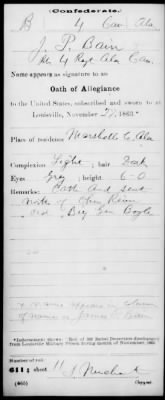 Confederate.
B 4 Cav. Ala.
J. P. Bain
Co. 4 Regt. Ala. Cav.
Name appears as signature to an
Oath of Allegiance
to the United States, subscribed and sworn to at
Louisville, November 27, 1863.*
Place of residence Marshall Co. Ala.
Complexion Light; hair Dark
Eyes Gray; height 6-0
Remarks: Oath and sent
north of Ohio River
ord. Brig Gen Boyle
name appears in
of name as James P. Bain
from Louisville Military Prison during month of November, 1863.
Number of roll:
611;
(665) Copyist.